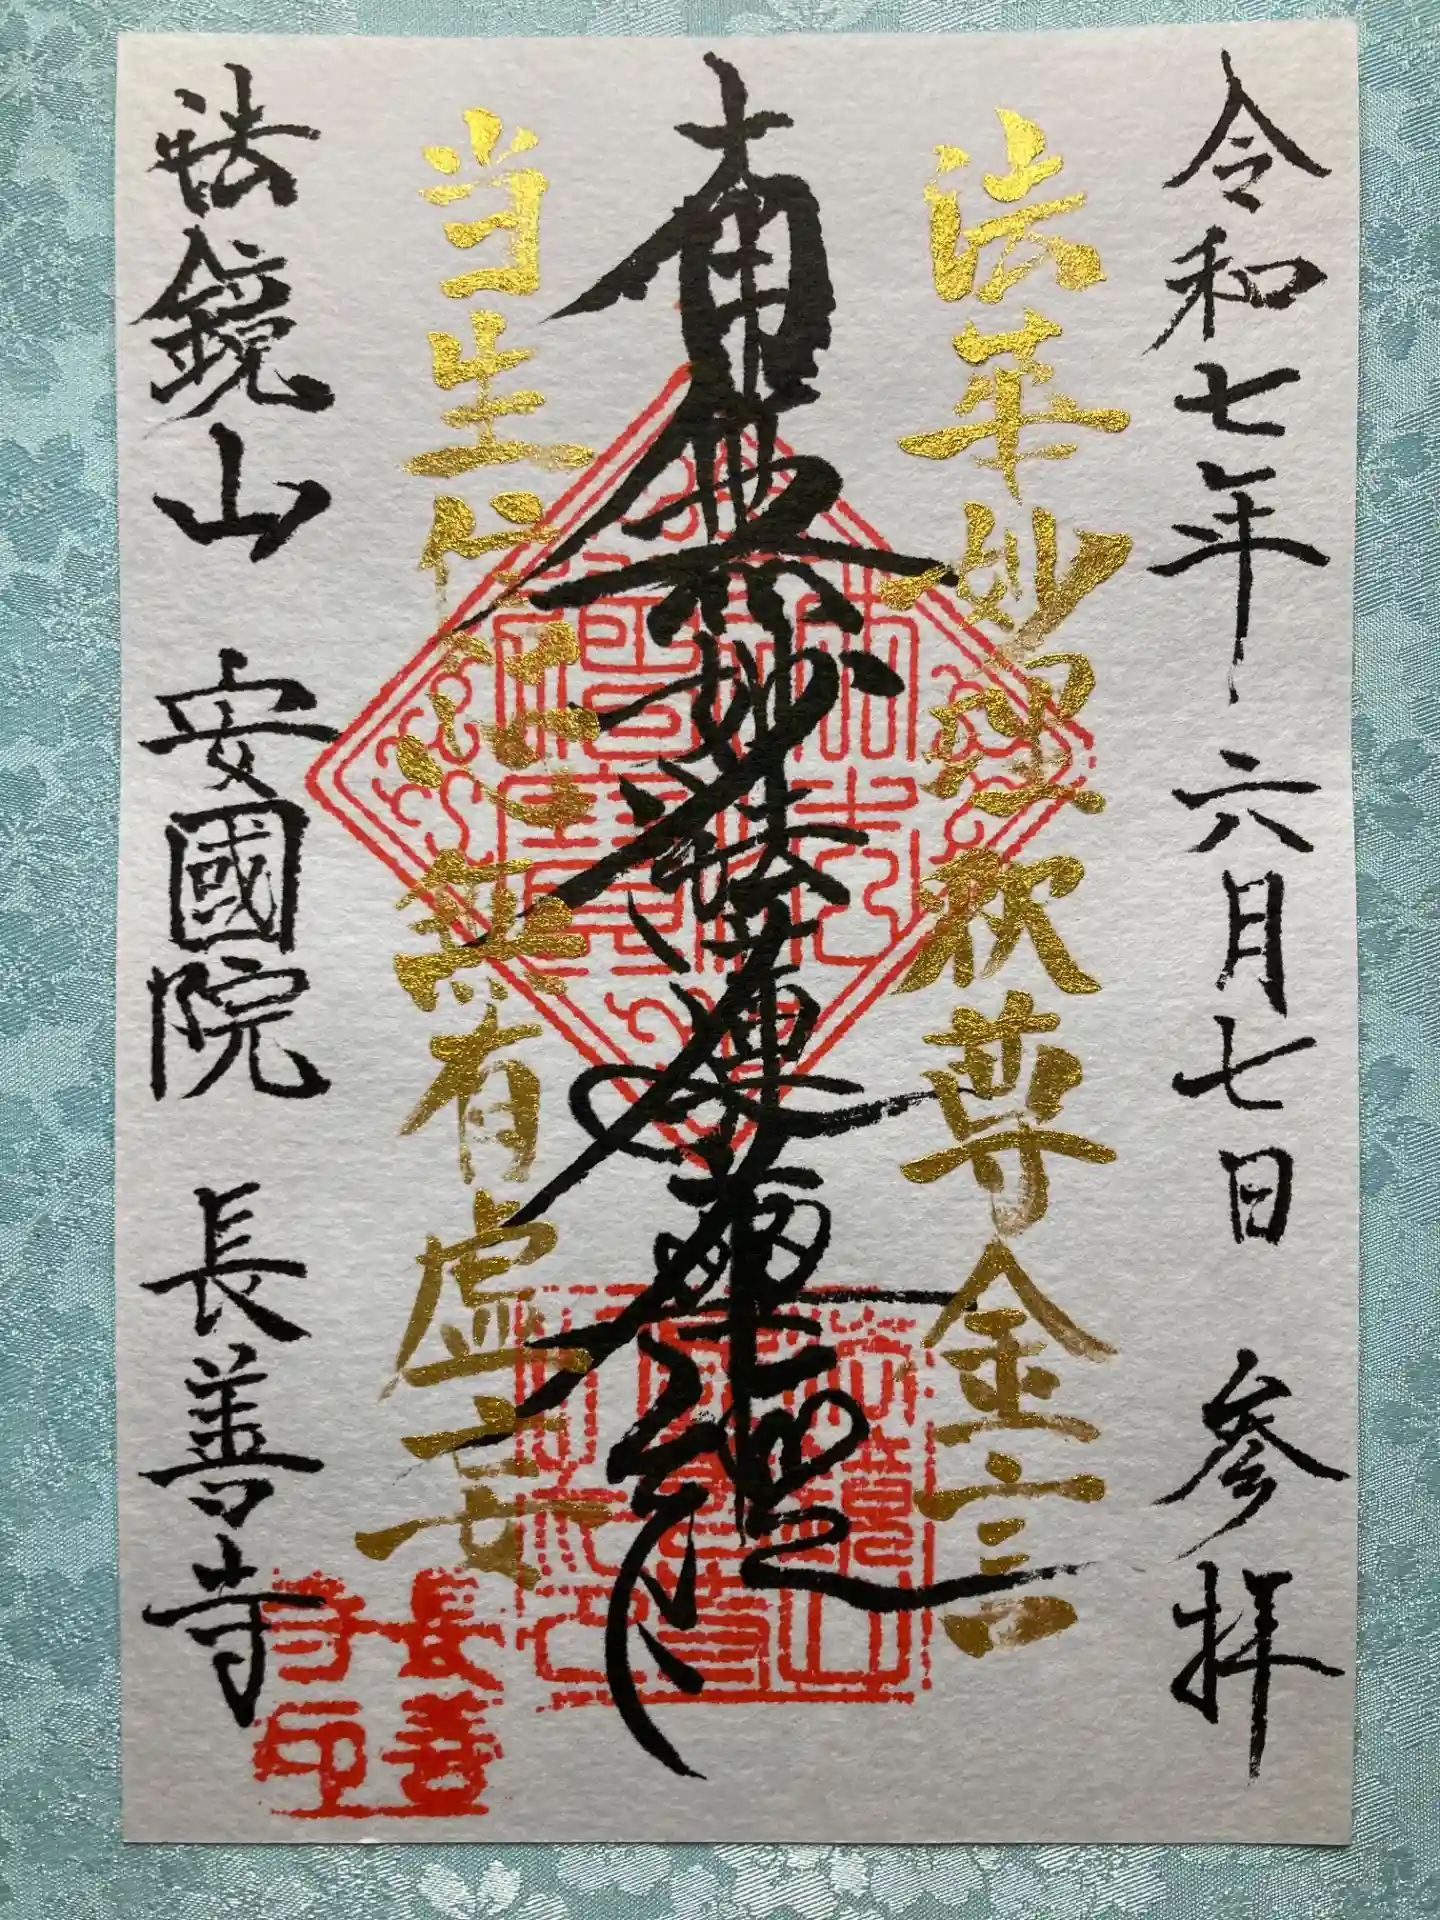 令和七年 六月七日 参拝
法華妙理釈尊金言
南無妙法蓮華經
当生信心無有虚妄
法鏡山 安國院 長善寺
長善寺印